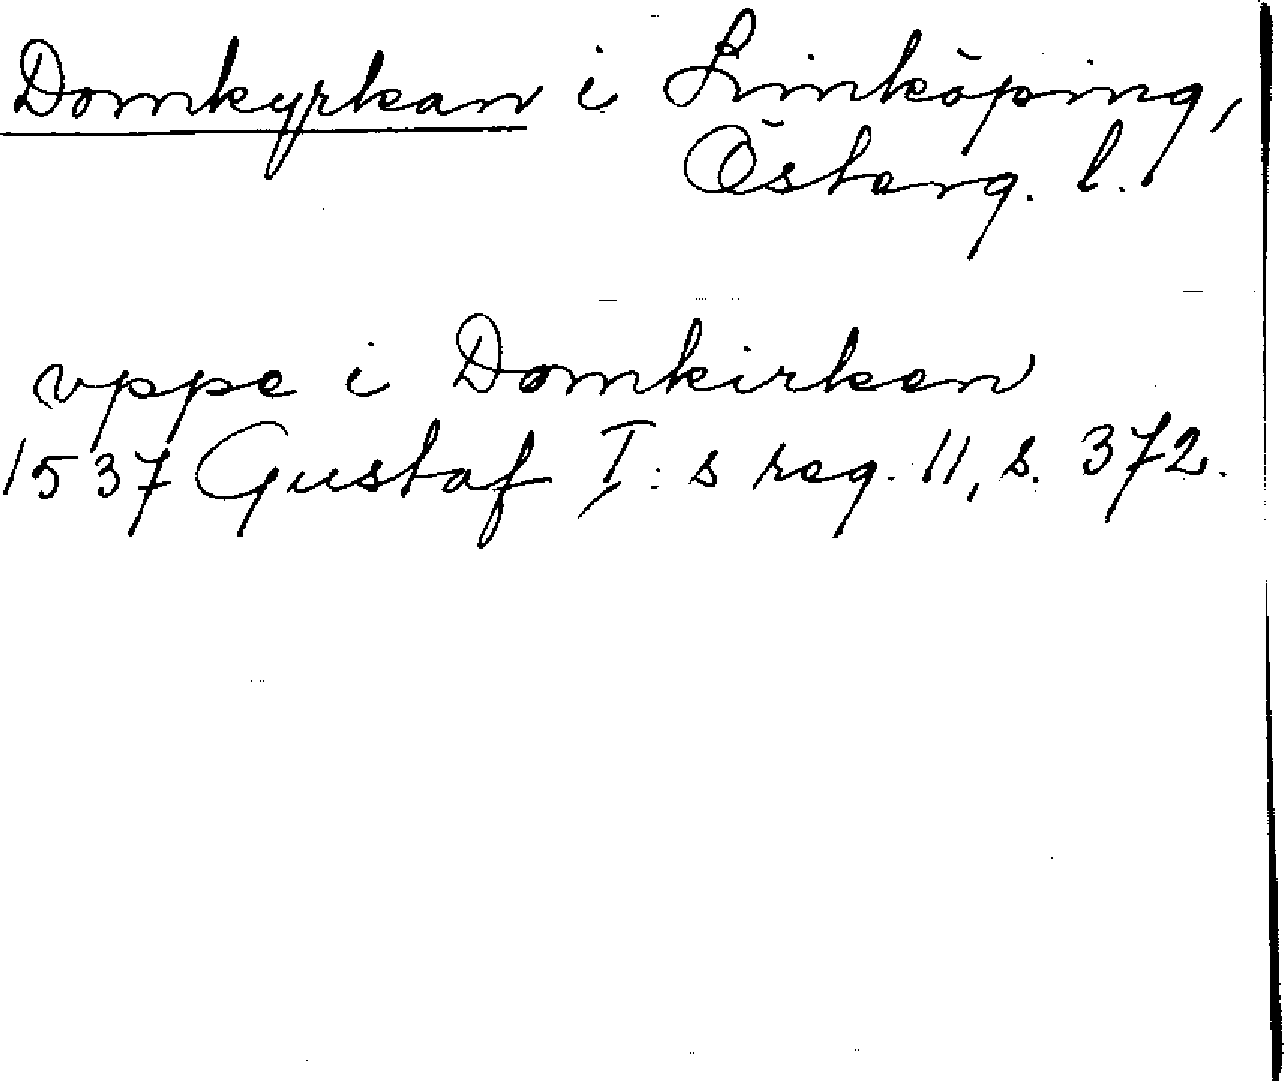 Domkyrkan i Linköping,
Österg. l.
vppe i Domkirken
1537 Gustaf I:s reg. 11, s. 372.